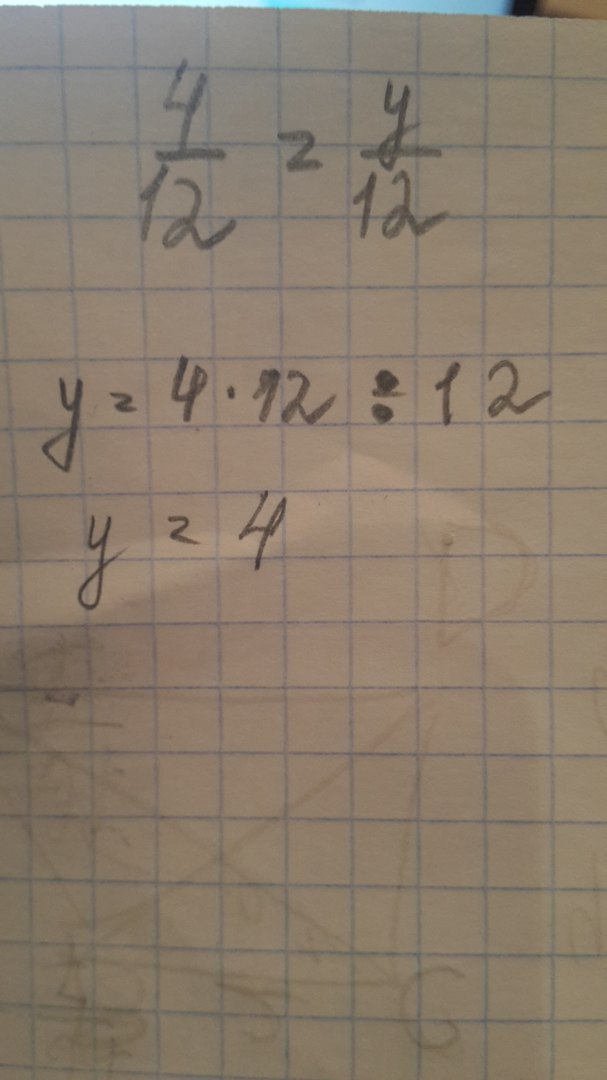 4/12 = y/12
y = 4 · 12 ÷ 12
y = 4